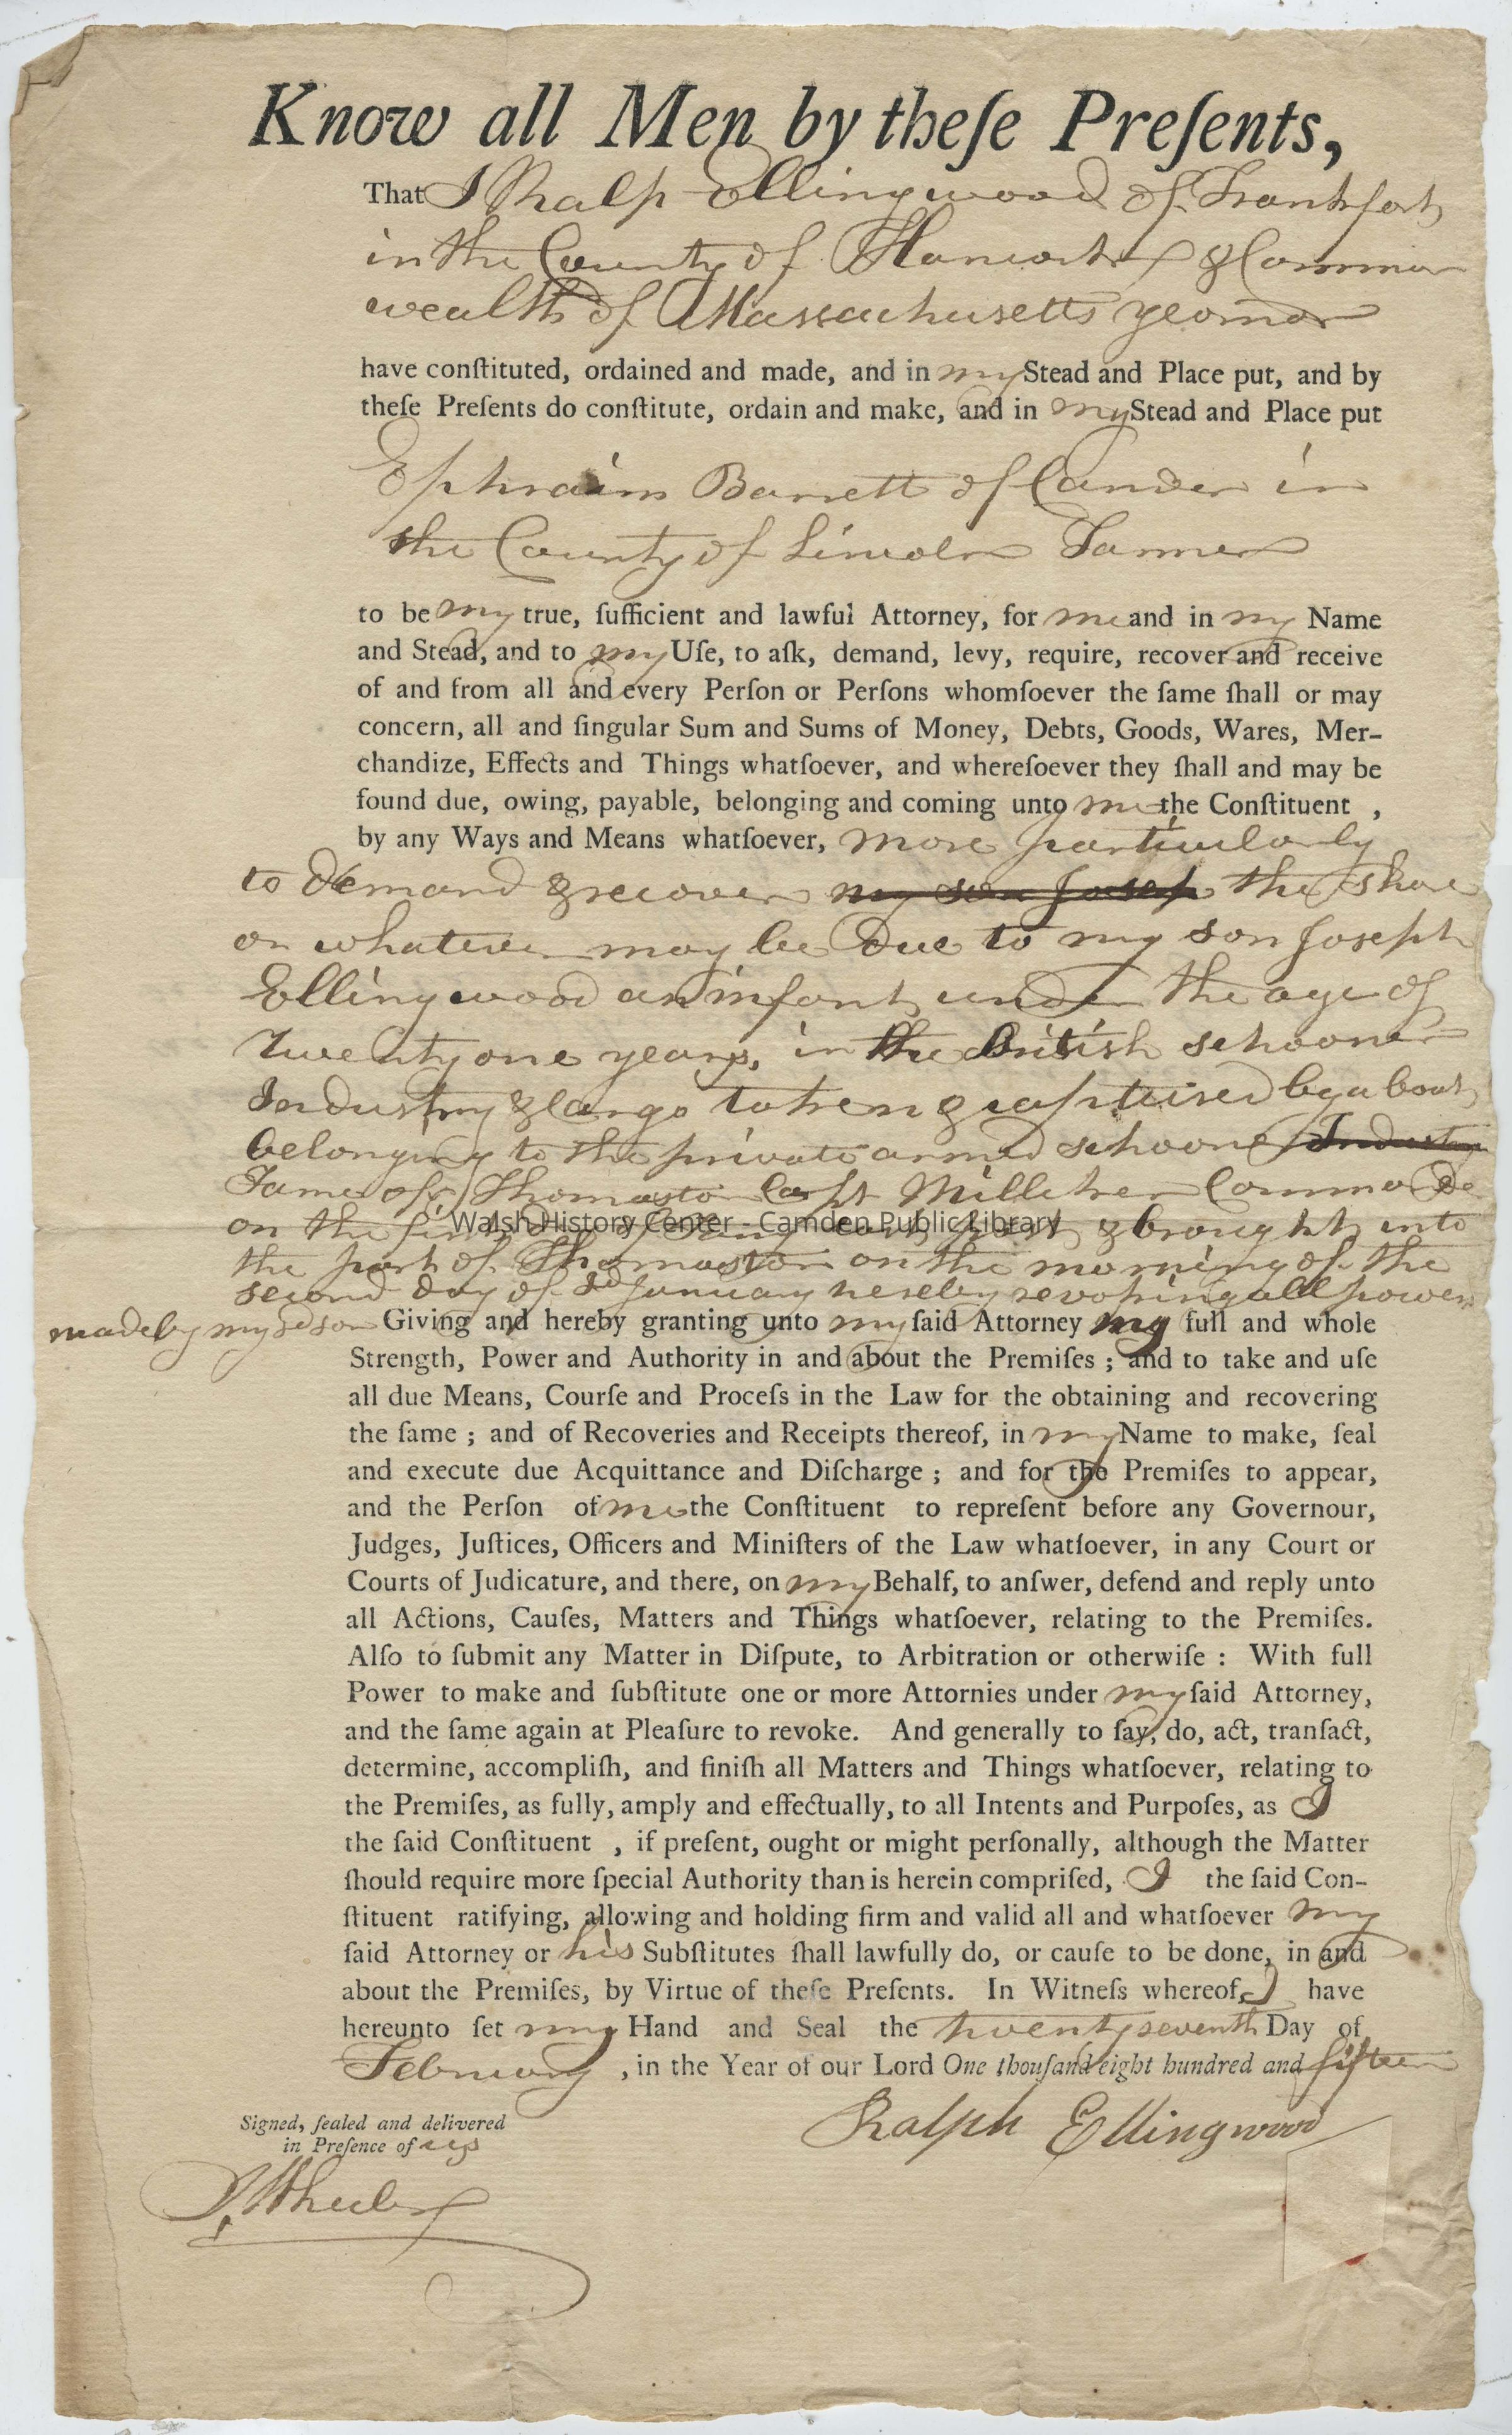 Know all Men by theſe Preſents,
That I Ralp Ellingwood of Frankfort
in the County of Hancock & Common
wealth of Massachusetts yeoman
have conſtituted, ordained and made, and in my Stead and Place put, and by
theſe Preſents do conſtitute, ordain and make, and in my Stead and Place put
Ephraim Barrett of Camden in
the County of Lincoln Tanner
to be my true, ſufficient and lawful Attorney, for me and in my Name
and Stead, and to my Uſe, to aſk, demand, levy, require, recover and receive
of and from all and every Perſon or Perſons whomſoever the ſame ſhall or may
concern, all and ſingular Sum and Sums of Money, Debts, Goods, Wares, Mer-
chandize, Effects and Things whatſoever, and whereſoever they ſhall and may be
found due, owing, payable, belonging and coming unto me the Conſtituent ,
by any Ways and Means whatſoever, more particularly
to demand & recover my son Josep the share
or whatever may be due to my son Joseph
Ellingwood an infant under the age of
Twenty one years, in the British schooner
Industry & Cargo taken & captured by a boat
belonging to the private armed schooner Industry
Fame of Thomaston Capt Milliken
on the first & brought into
the port of Thomaston on the morning of the
second day of Sd January hereby revoking all power
made by my sd son Giving and hereby granting unto my ſaid Attorney my full and whole
Strength, Power and Authority in and about the Premiſes ; and to take and uſe
all due Means, Courſe and Proceſs in the Law for the obtaining and recovering
the ſame ; and of Recoveries and Receipts thereof, in my Name to make, ſeal
and execute due Acquittance and Diſcharge ; and for the Premiſes to appear,
and the Perſon of me the Conſtituent to repreſent before any Governour,
Judges, Juſtices, Officers and Miniſters of the Law whatſoever, in any Court or
Courts of Judicature, and there, on my Behalf, to anſwer, defend and reply unto
all Actions, Cauſes, Matters and Things whatſoever, relating to the Premiſes.
Alſo to ſubmit any Matter in Diſpute, to Arbitration or otherwiſe : With full
Power to make and ſubſtitute one or more Attornies under my ſaid Attorney,
and the ſame again at Pleaſure to revoke. And generally to ſay, do, act, tranſact,
determine, accompliſh, and finiſh all Matters and Things whatſoever, relating to
the Premiſes, as fully, amply and effectually, to all Intents and Purpoſes, as I
the ſaid Conſtituent , if preſent, ought or might perſonally, although the Matter
ſhould require more ſpecial Authority than is herein compriſed, I the ſaid Con-
ſtituent ratifying, allowing and holding firm and valid all and whatſoever my
ſaid Attorney or his Subſtitutes ſhall lawfully do, or cauſe to be done, in and
about the Premiſes, by Virtue of theſe Preſents. In Witneſs whereof, I have
hereunto ſet my Hand and Seal the twenty seventh Day of
February , in the Year of our Lord One thouſand eight hundred and fifteen
Signed, ſealed and delivered
in Preſence of us
Ralph Ellingwood
J. Wheeler
Walsh History Center - Camden Public Library